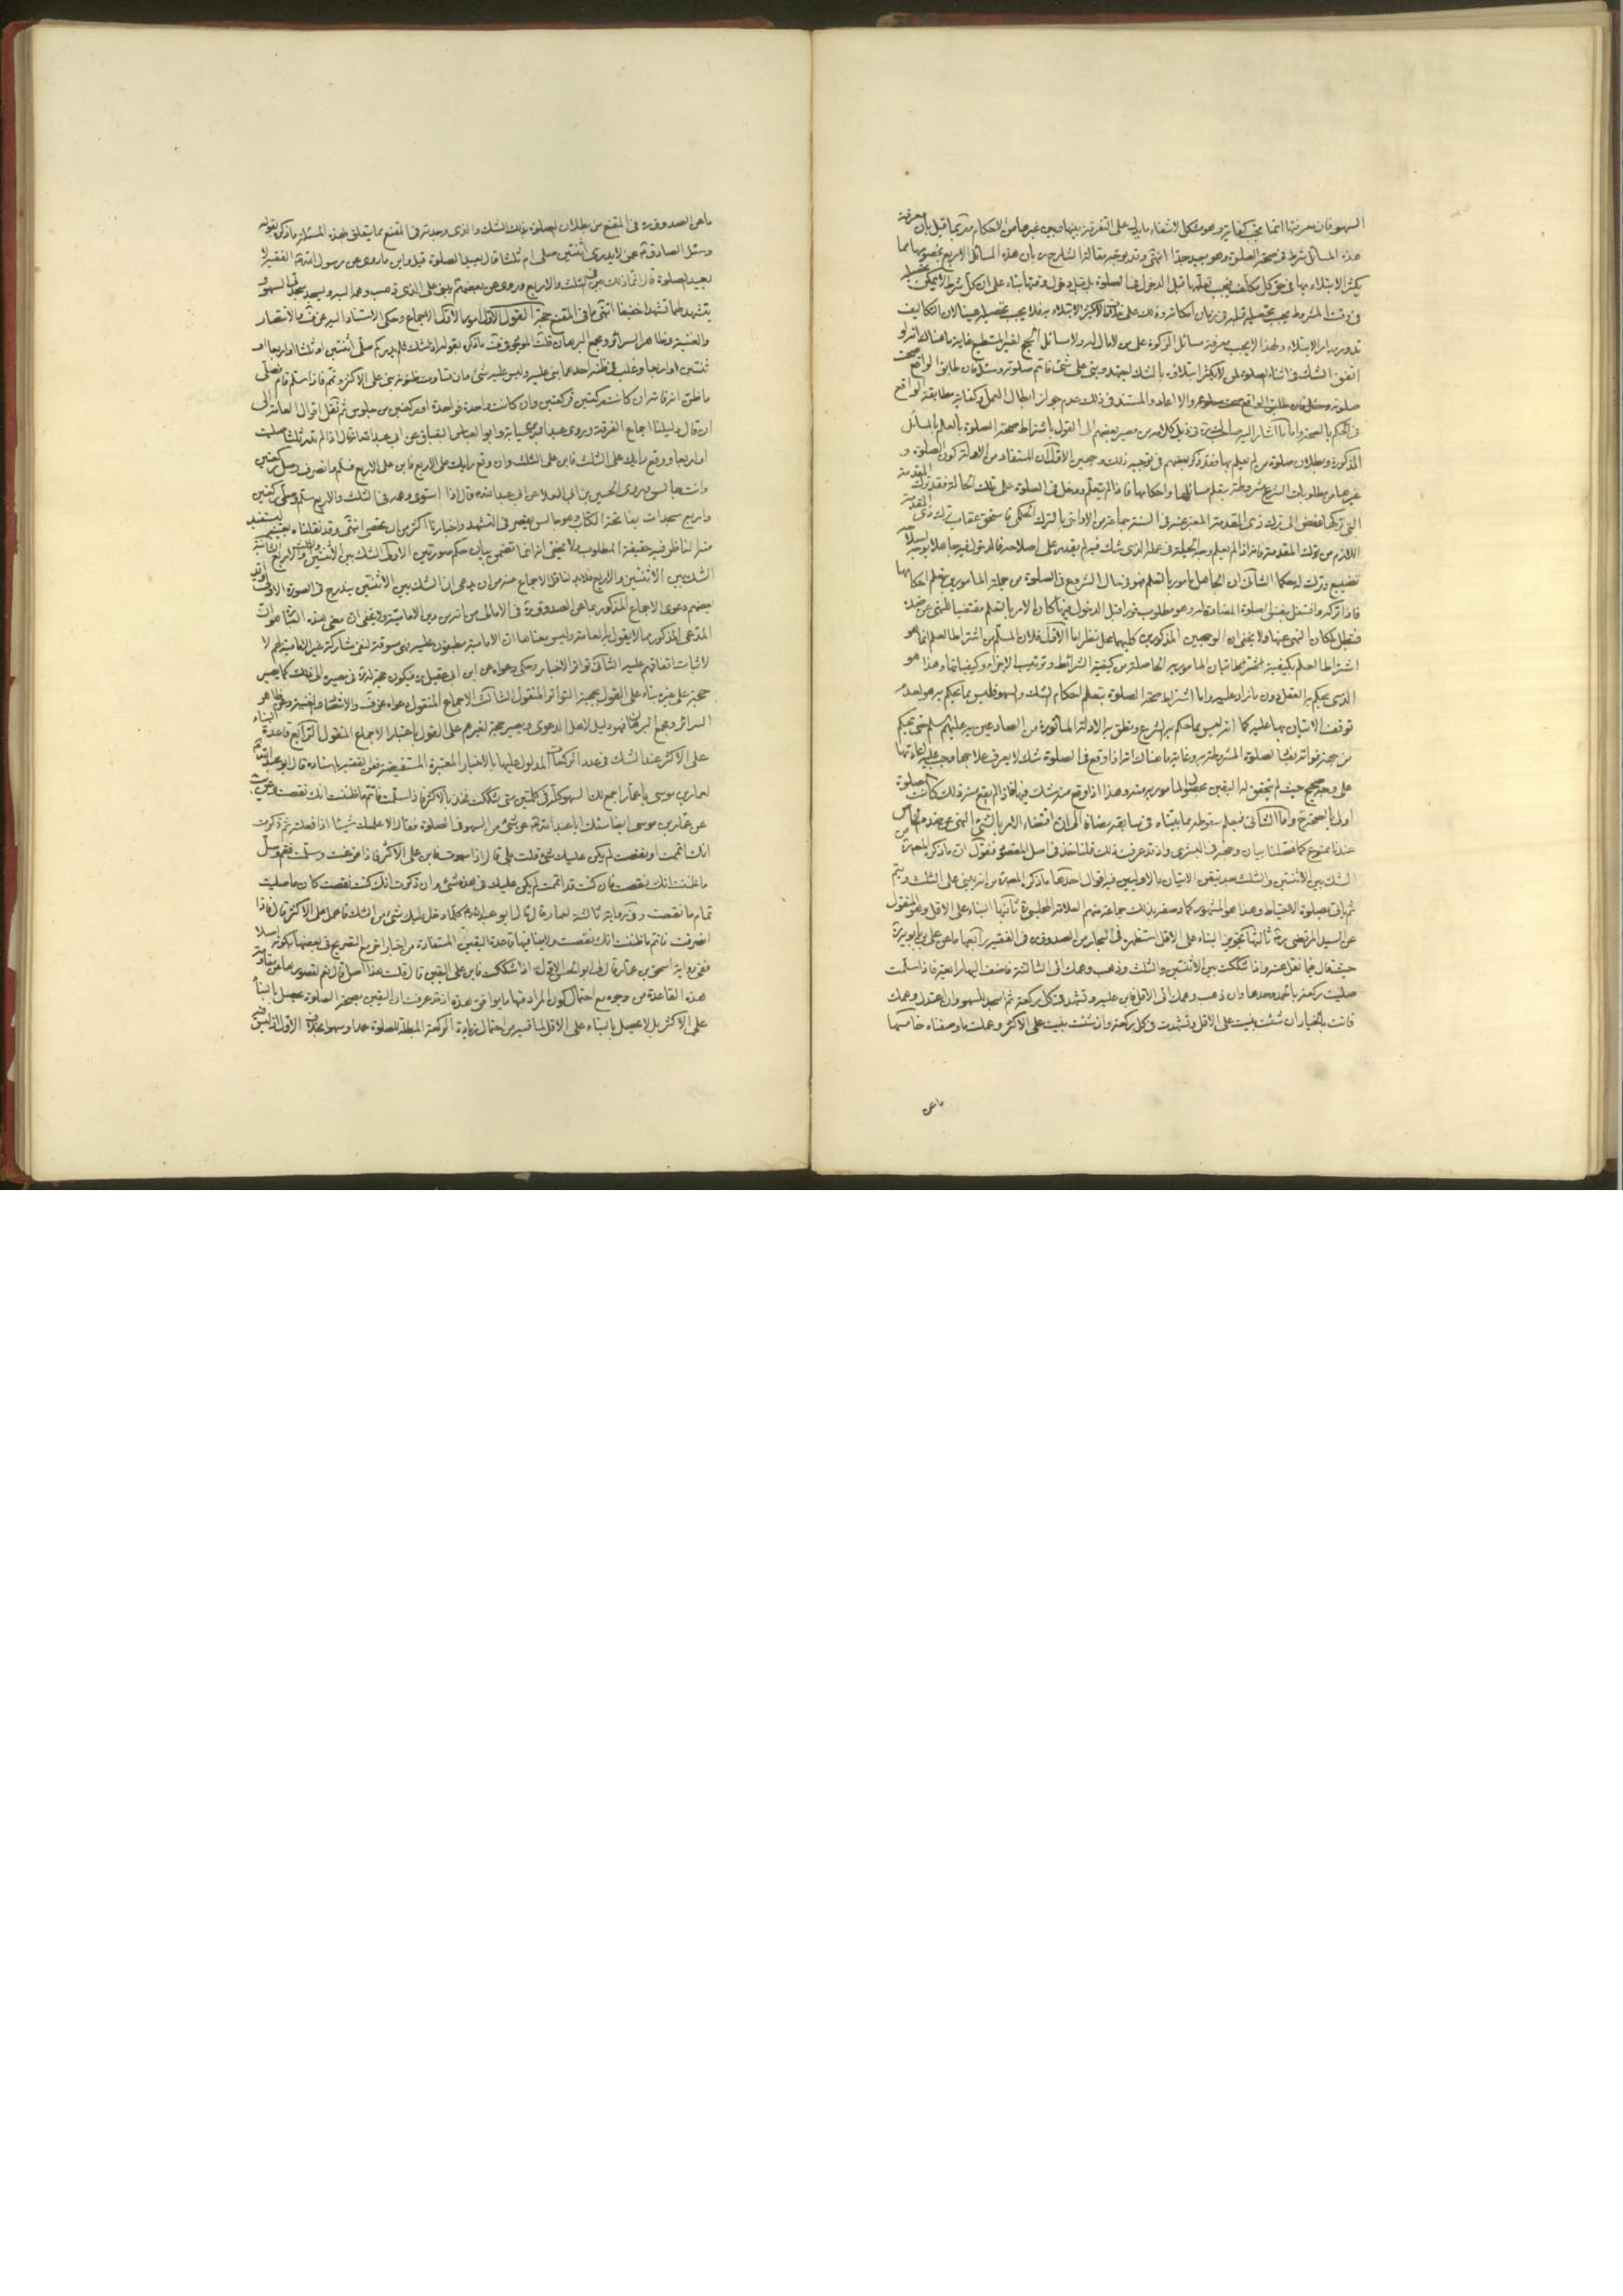 السهو فان معرفتها انما تجب كفاية وهو مشكل لانتفاء ما يدل على التفرقة بينها وبين غيرها من الاحكام وربما قيل بان معرفة
هذه المسائل شرط في صحة الصلوة وهو بعيد جدا انتهى وقد يوجه مقالة الشارح ره بان هذه المسائل الاربع بخصوصها مما
يكثر الابتلاء بها في حق كل مكلف فيجب تعلمها قبل الدخول في الصلوة بل قبل دخول وقتها بناء على ان كل شرط لا يمكن تحصيله
في وقت المشروط يجب تحصيله قبله في زمان امكانه
تدور مدار الابتلاء ولهذا لا يجب معرفة مسائل الزكوة على من لا مال له ولا مسائل الحج لغير المستطيع غاية ما هناك انه لو
اتفق الشك في اثناء الصلوة لمن لا يكثر ابتلاؤه بالشك اجتهد وبنى على شئ فاتم صلوته وسئل فان طابق الواقع صحت
صلوته والا اعاد والمستند في ذلك عدم جواز ابطال العمل وكفاية مطابقة الواقع
في الحكم بالصحة واما ما اشار اليه صاحب في ذيل كلامه من مصير بعضهم الى القول باشتراط صحة الصلوة بالعلم بالمسائل
المذكورة وبطلان صلوة من لم يعلم بها فقد ذكر بعضهم في توجيه ذلك وجهين الاول ان المستفاد من الادلة كون الصلوة و
غيرها من مطلوبات الشرع مشروطة بتعلم مسائلها واحكامها فاذا لم يتعلم ودخل في الصلوة على تلك الحالة فقد ترك المقدمة
التى تركها مفض الى ترك ذى المقدمة المعبر عنه في السنة جماعة من الاواخر بالترك الحكمى فاستحق عقاب ترك ذى المقدمة
اللازم من ترك المقدمة فانه اذا لم يعلم وجه الحيلة في عمله الذى شك فيه لم يقدر على اصلاحه فالدخول فيه جاهلا بوجه اصلاحه
تضييع وترك له حكما الثانى ان الجاهل مامور بالتعلم فهو في حال الشروع في الصلوة من جملة المامورين بتعلم احكامها
فاذا تركه واشتغل بفعل الصلوة المضادة له وهو مطلوب فورا قبل الدخول فيها كان الامر بالتعلم مقتضيا للنهى عن ضده
فتبطل لمكان النهى عنها ولا يخفى ان الوجهين المذكورين كليهما محل نظر اما الاول فلان المسلم من اشتراط العلم انما هو
اشتراط العلم بكيفية
الذى يحكم به العقل دون ما زاد عليه واما اشتراط صحة الصلوة بتعلم احكام الشك والسهو فليس مما يحكم به هو لعدم
توقف الاتيان بها عليه كما انه ليس مما حكم به الشرع ونطق به الادلة الماثورة من الصادعين به عليهم السلم حتى يحكم
من جهة فواته بفساد الصلوة المشروطة به وغاية ما هناك انه اذا وقع في الصلوة شك لا يعرف علاجها وجب عليه اعادتها
على وجه صحيح حيث لم يتحقق له اليقين بحصول المامور به منه وهذا اذا وقع منه شك فيها فاذا لم يقع منه ذلك كانت الصلوة
اولى بالصحة ح واما الثانى فيعلم سقوطه مما بيناه في سابقه مضافا الى ان اقتضاء الامر بالشئ النهى عن ضده الخاص
عندنا ممنوع كما فصلنا بيانه وحضر في البشرى واذ قد عرفت ذلك فلناخذ في اصل المقصود فنقول ان ما ذكره المص ره من
الشك بين الاثنتين والثلث بعد تيقن الاتيان بالاوليين فيه اقوال احدها ما ذكره المص ره من انه يبنى على الثلث ويتم
ثم ياتى بصلوة الاحتياط وهذا هو المشهور كما وصفه بذلك جماعة منهم العلامة المجلسى ره ثانيها البناء على الاقل وهو المنقول
عن السيد المرتضى ره ثالثها تجويز البناء على الاقل استظهره في البحار من الصدوق ره في الفقيه رابعها ما عن على بن بابويه ره
حيث قال فيما نقل عنه واذا شككت بين الاثنتين والثلث وذهب وهمك الى الثالثة فاضف اليها رابعة فاذا سلمت
صليت ركعة بالحمد وحدها وان ذهب وهمك الى الاقل فابن عليه وتشهد في كل ركعة ثم اسجد للسهو وان اعتدل وهمك
فانت بالخيار ان شئت بنيت على الاقل وتشهدت في كل ركعة وان شئت بنيت على الاكثر وعملت ما وصفناه خامسها
ما عن
ما عن الصدوق ره في المقنع من بطلان الصلوة بذلك الشك والذى وجدته في المقنع مما يتعلق بهذه المسئلة ما ذكره بقوله
وسئل الصادق ع عمن لا يدرى اثنتين صلى ام ثلثا قال يعيد الصلوة قيل واين ما روى عن رسول الله ص الفقيه لا
يعيد الصلوة قال انما ذلك بين الثلث والاربع وروى عن بعضهم ع يبنى على الذى ذهب وهمه اليه ويسجد سجدتى السهو و
يتشهد لهما تشهدا خفيفا انتهى ما في المقنع حجة القول الاول امور الاول الاجماع وحكى الاستناد اليه عن ف والانتصار
والغنية وظاهر السرائر ومجمع البرهان
ثنتين او اربعا وغلب في ظنه احدهما بنى عليه وليس عليه شئ وان تساوت ظنونه بنى على الاكثر وتمم فاذا سلم قام فصلى
ما ظن انه فاته ان كانت ركعتين فركعتين وان كانت واحدة فواحدة او ركعتين من جلوس ثم نقل اقوال العامة الى
ان قال دليلنا اجماع الفرقة وروى عبد الرحمن بن سيابة وابو العباس البقباق عن ابى عبد الله ع قال اذا لم تدر ثلثا صليت
او اربعا ووقع رايك على الثلث فابن على الثلث وان وقع رايك على الاربع فابن على الاربع فسلم وانصرف وصل ركعتين
وانت جالس وروى الحسين بن ابى العلا عن ابى عبد الله ع قال اذا استوى وهمه في الثلث والاربع سلم وصلى ركعتين
واربع سجدات بفاتحة الكتاب وهو جالس يقصر في التشهد واخبارنا اكثر من ان تحصى انتهى وقد نقلناه بعينه ليستفيد
منه الناظر فيه حقيقة المطلوب ولا يخفى انه انما تضمن بيان حكم صورتين الاولى الشك بين الاثنتين والثلث والاربع الثانية
الشك بين الاثنتين والاربع فلا بد لناقل الاجماع عنه من ان يدعى ان الشك بين الاثنتين يندرج في الصورة الاولى وايد
بعضهم دعوى الاجماع المذكور بما عن الصدوق ره في الامالى من انه من دين الامامية ولا يخفى ان معنى هذه العبارة هو ان
المدعى المذكور مما لا يقول به العامة وليس معناها ان الامامية مطبقون عليه فهى مسوقة لنفى مشاركة غير الامامية لهم لا
لاثبات اتفاقهم عليه الثانى تواتر الاخبار وحكى دعواه عن ابن ابى عقيل ره فيكون حجة له في مصيره الى ذلك كما يصير
حجة على غيره بناء على القول بحجية التواتر المنقول الثالث الاجماع المنقول دعواه عن ف والانتصار والغنية وعن ظاهر
السرائر ومجمع البرهان فهو دليل لاهل الدعوى ويصير حجة لغيرهم على القول باعتبار الاجماع المنقول الرابع قاعدة البناء
على الاكثر عند الشك في عدد الركعات المدلول عليها بالاخبار المعتبرة المستفيضة فعن الفقيه باسناده قال ابو عبد الله ع
لعمار بن موسى يا عمار اجمع لك السهو كله في كلمتين متى شككت فخذ بالاكثر فاذا سلمت فاتم ما ظننت انك نقصت وعن يب
عن عمار بن موسى ايضا سئلت ابا عبد الله ع عن شئ من السهو في الصلوة فقال الا اعلمك شيئا اذا فعلته ثم ذكرت
انك اتممت او نقصت لم يكن عليك شئ قلت بلى قال اذا سهوت فابن على الاكثر فاذا فرغت وسلمت فقم وصل
ما ظننت انك نقصت فان كنت قد اتممت لم يكن عليك في هذه شئ وان ذكرت انك كنت نقصت كان ما صليت
تمام ما نقصت وفى رواية ثالثة لعمار قال قال ابو عبد الله ع كلما دخل عليك شئ من الشك فاعمل على الاكثر قال فاذا
انصرفت فاتم ما ظننت انك نقصت ولا ينافيها قاعدة اليقين المستفادة من اخبار اخر مع التصريح في بعضها بكونه اصلا
ففى رواية اسحق بن عمار قال لى ابو الحسن الاول ع اذا شككت فابن على اليقين قال قلت هذا اصل قال نعم لقصورها عن مقاومة
هذه القاعدة من وجوه مع احتمال كون المراد منها ما يوافق هذه اذ قد عرفت ان اليقين بصحة الصلوة يحصل بالبناء
على الاكثر بل لا يحصل بالبناء على الاقل لما فيه من احتمال زيادة الركعة المبطلة للصلوة عمدا وسهوا بخلاف الاول اذ ليس فيه